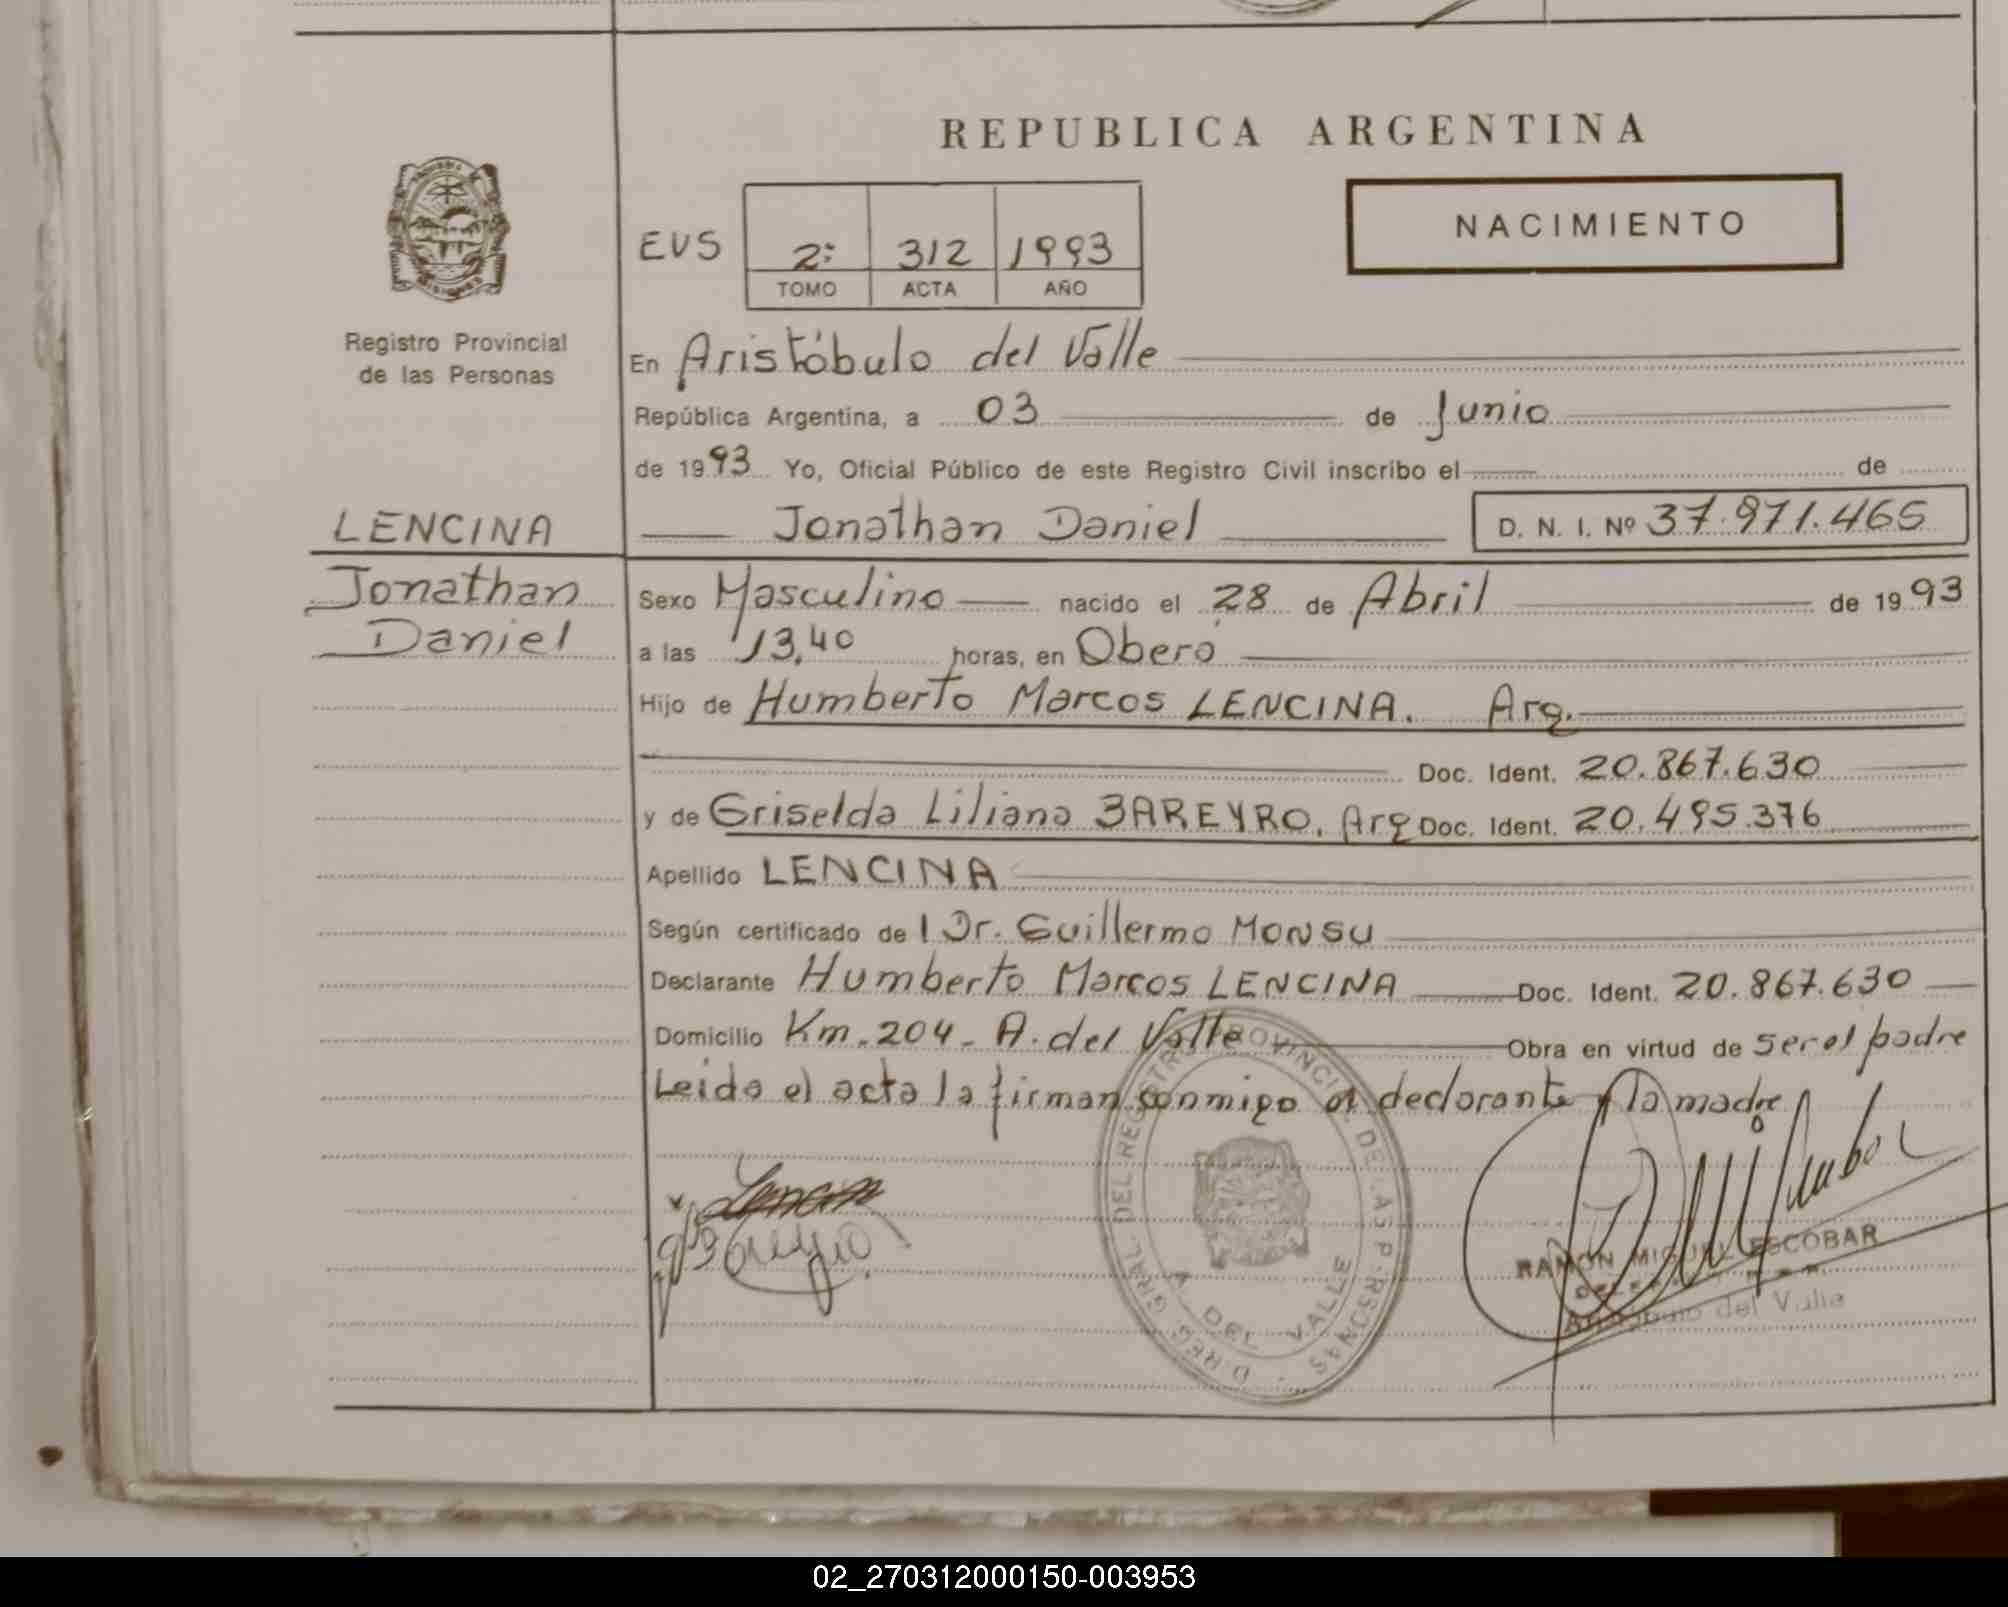 REPUBLICA ARGENTINA
NACIMIENTO
EVS
2º 312 1993
TOMO ACTA AÑO
Registro Provincial
de las Personas
En Aristóbulo del Valle
República Argentina, a 03 de Junio
de 1993 Yo, Oficial Público de este Registro Civil inscribo el de
Jonathan Daniel D. N. I. Nº 37.971.465
LENCINA
Jonathan
Daniel
Sexo Masculino nacido el 28 de Abril de 1993
a las 13,40 horas, en Oberá
Hijo de Humberto Marcos LENCINA. Arg.
Doc. Ident. 20.867.630
y de Griselda Liliana BAREYRO. Arg Doc. Ident. 20.495.376
Apellido LENCINA
Según certificado de l Dr. Guillermo MONSU
Declarante Humberto Marcos LENCINA Doc. Ident. 20.867.630
Domicilio Km. 204 - A. del Valle Obra en virtud de ser el padre
Leida el acta la firman conmigo el declarante y la madre
DIREC. GRAL. DEL REGISTRO PROVINCIAL DE LAS PERSONAS
A. DEL VALLE
RAMON MIGUEL ESCOBAR
Aristóbulo del Valle
02_270312000150-003953